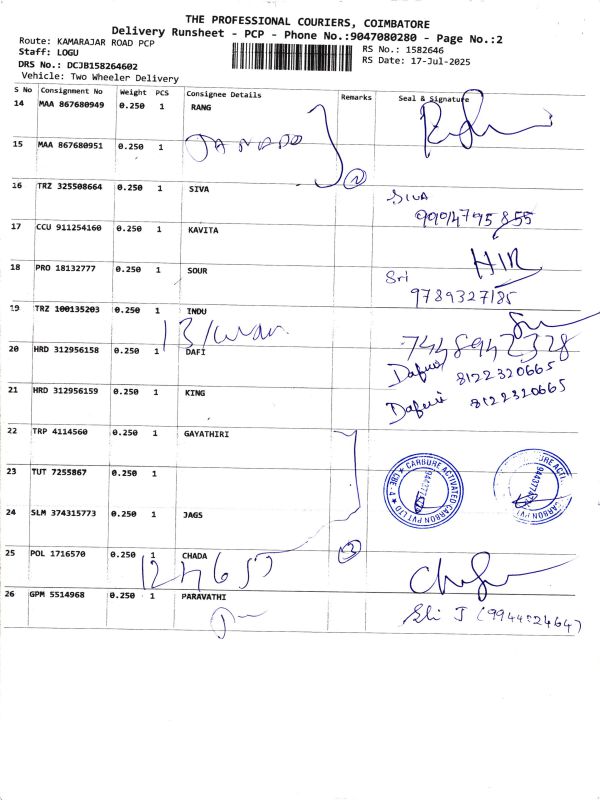 THE PROFESSIONAL COURIERS, COIMBATORE
Delivery Runsheet - PCP - Phone No.:9047080280 - Page No.:2
Route: KAMARAJAR ROAD PCP
Staff: LOGU
RS No.: 1582646
DRS No.: DCJB158264602
RS Date: 17-Jul-2025
Vehicle: Two Wheeler Delivery
S No Consignment No Weight PCS Consignee Details Remarks Seal & Signature
14 MAA 867680949 0.250 1 RANG
15 MAA 867680951 0.250 1
2
16 TRZ 325508664 0.250 1 SIVA
SIVA
9994795855
17 CCU 911254160 0.250 1 KAVITA
18 PRO 18132777 0.250 1 SOUR
Sri
9789327185
19 TRZ 100135203 0.250 1 INDU
7448942328
20 HRD 312956158 0.250 1 DAFI
8122320665
21 HRD 312956159 0.250 1 KING
8122320665
22 TRP 4114560 0.250 1 GAYATHIRI
23 TUT 7255867 0.250 1
CARBURE ACTIVATED CARBON PVT LTD
CBE-4
24 SLM 374315773 0.250 1 JAGS
3
25 POL 1716570 0.250 1 CHADA
26 GPM 5514968 0.250 1 PARAVATHI